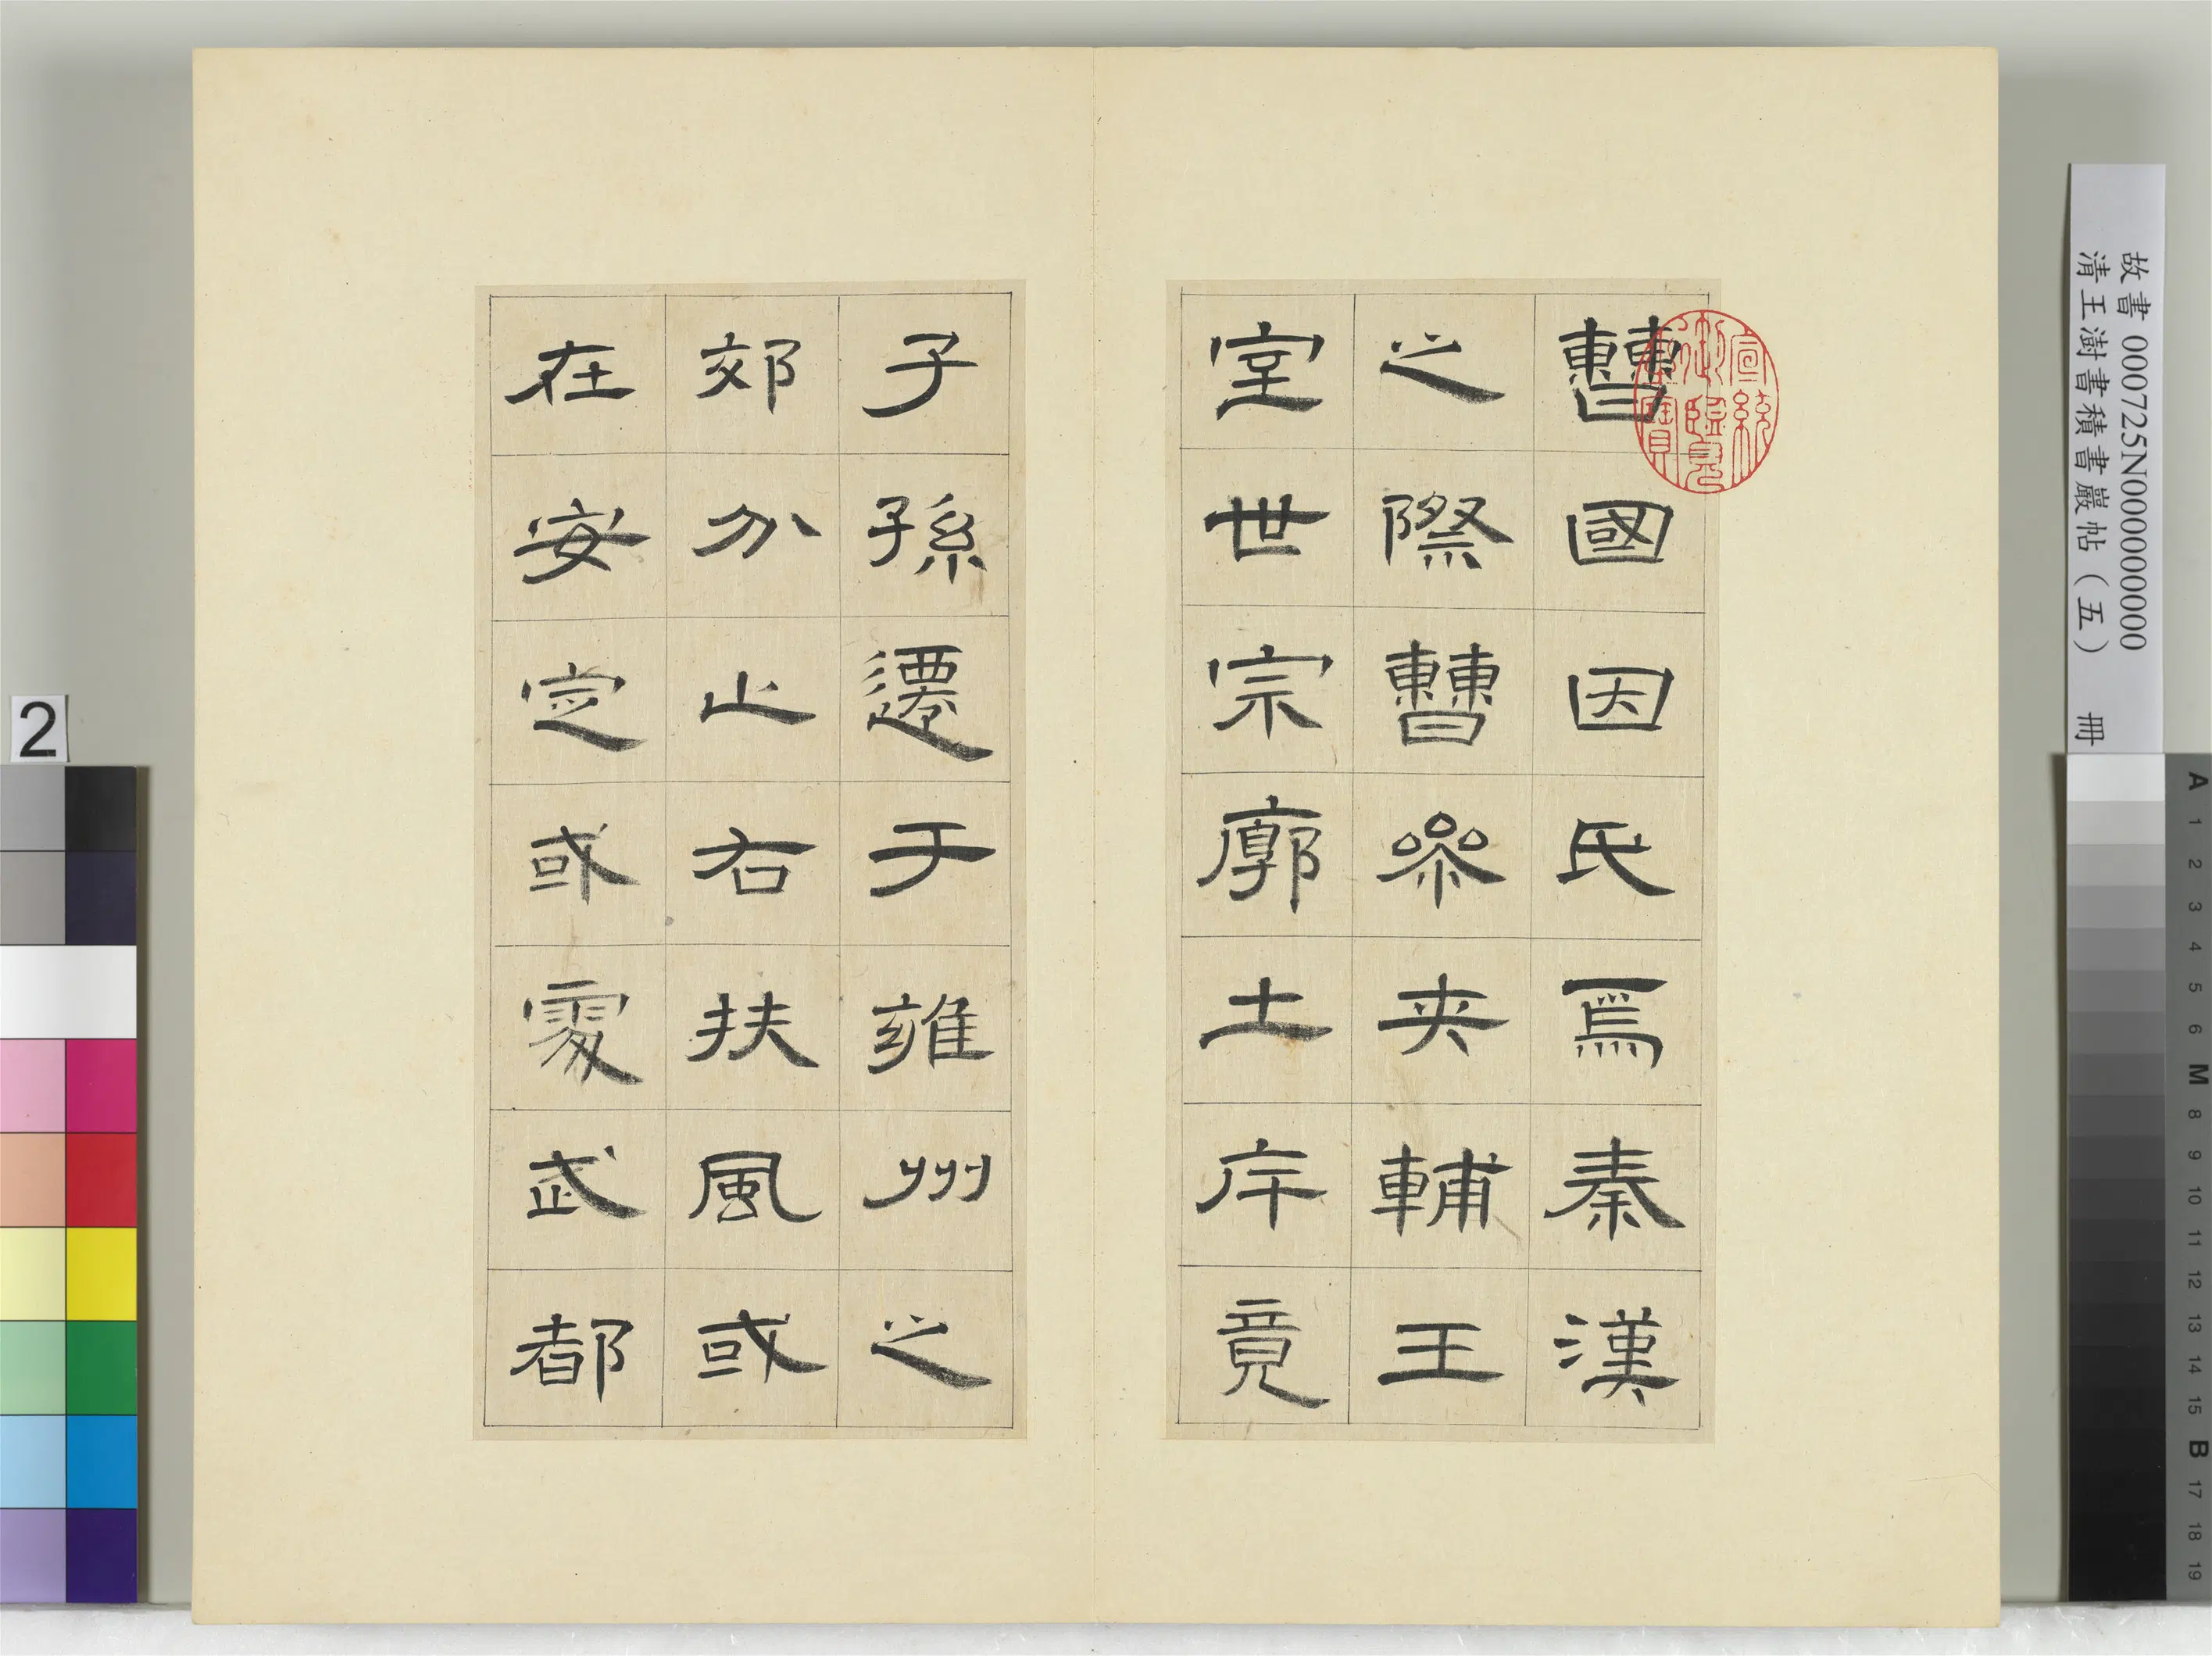 曹國因氏焉秦漢
之際曹參夾輔王
室世宗廓土斥竟
子孫遷于雍州之
郊分止右扶風或
在安定或處武都
宣統御覽之寶
故書 000725N000000000
清王澍書積書巖帖（五） 冊
2
A 1 2 3 4 5 6 M 8 9 10 11 12 13 14 15 B 17 18 19